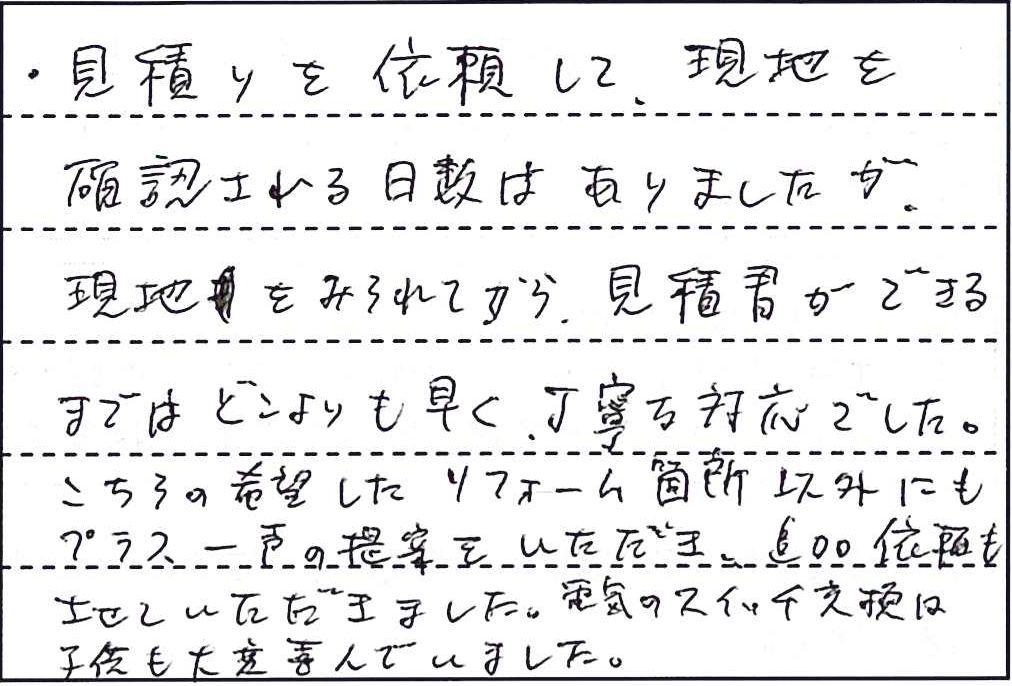 ・見積りを依頼して、現地を
確認される日数はありましたが、
現地をみられてから、見積書ができる
まではどこよりも早く、丁寧な対応でした。
こちらの希望したリフォーム箇所以外にも
プラス一声の提案をいただき、追加依頼も
させていただきました。電気のスイッチ交換は
子供も大変喜んでいました。